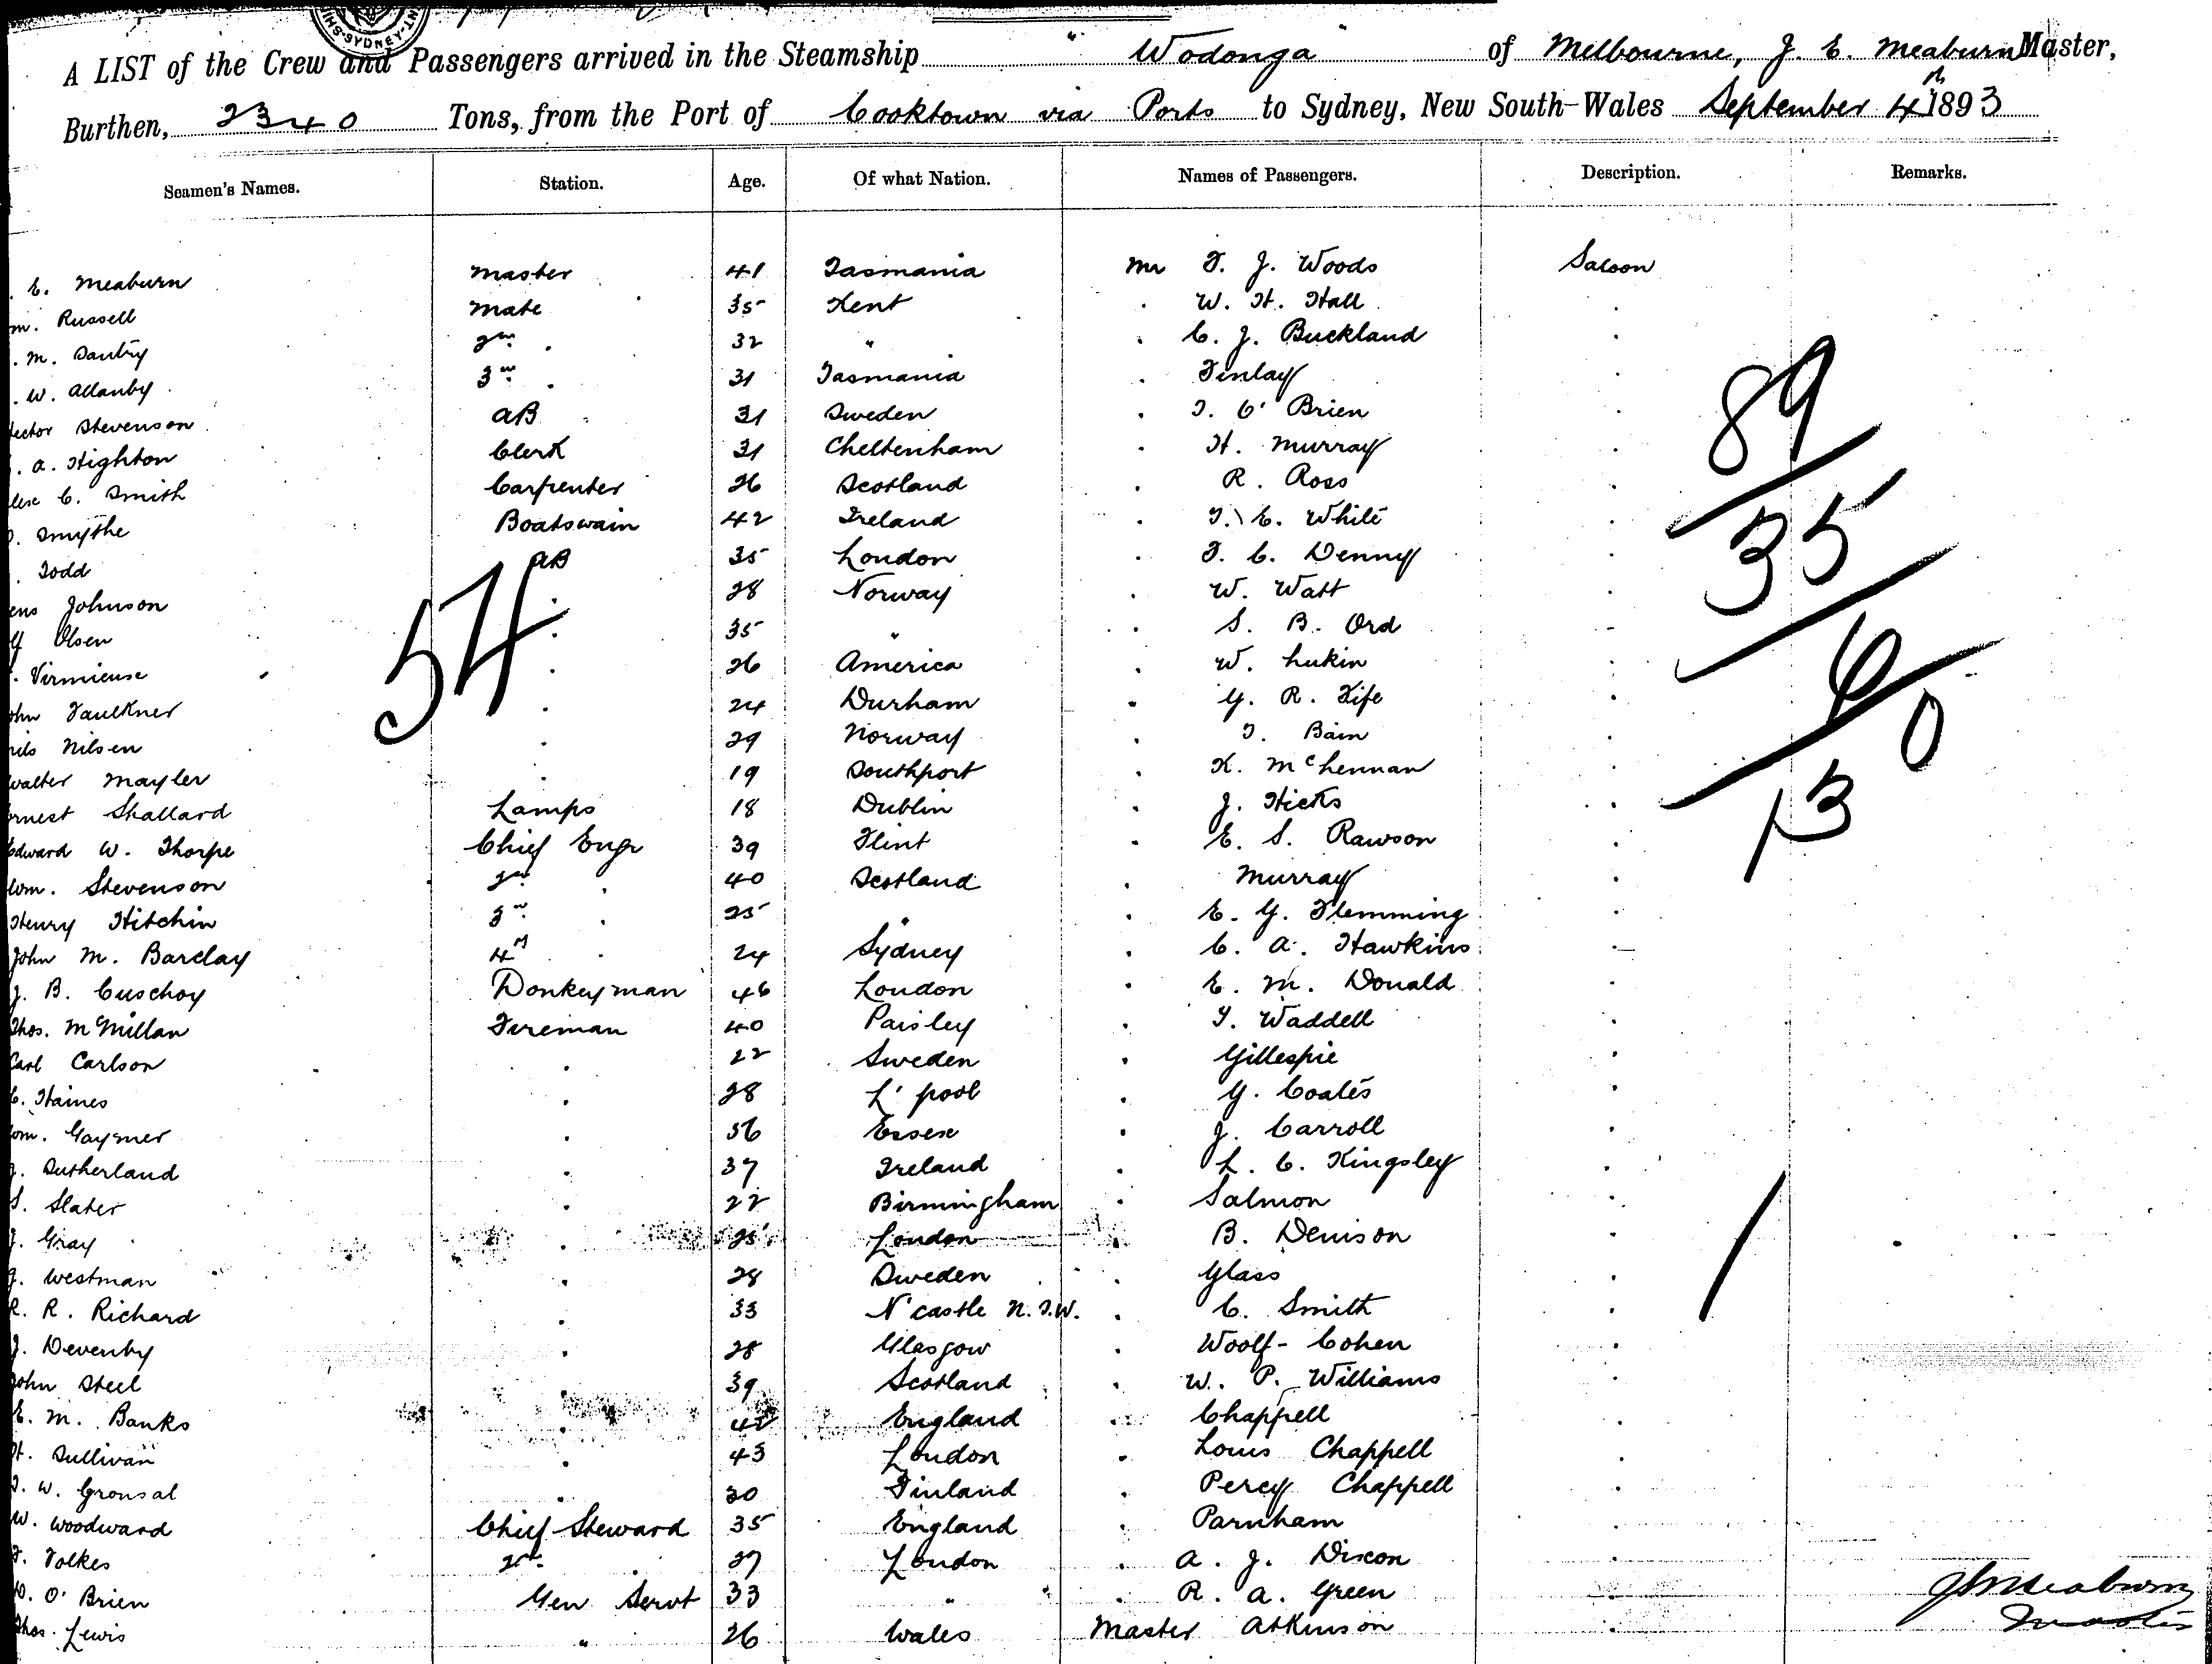 SYDNEY
A LIST of the Crew and Passengers arrived in the Steamship "Wodonga" of Melbourne, J. E. Meaburn Master,
Burthen, 2340 Tons, from the Port of Cooktown via Ports to Sydney, New South Wales September 4th 1893
Seamen's Names. Station. Age. Of what Nation. Names of Passengers. Description. Remarks.
. E. Meaburn Master 41 Tasmania Mr F. J. Woods Saloon
m. Russell Mate 35 Kent . W. H. Hall .
. M. 2nd . 32 " . C. J. Buckland .
. W. Allanby 3rd . 31 Tasmania . Finlay .
ector Stevenson AB 31 Sweden . T. O'Brien .
. A. Highton Clerk 31 Cheltenham . H. Murray .
lex C. Smith Carpenter 26 Scotland . R. Ross .
. Smythe Boatswain 42 Ireland . T. E. White .
. Todd AB 35 London . F. C. Denny .
ens Johnson . 28 Norway . W. Watt .
lf Olsen . 35 " . S. B. Ord .
. . 26 America . W. Lukin .
ohn Faulkner . 24 Durham . G. R. Fife .
nils Nilsen . 29 Norway . T. Bain .
Walter Mayler . 19 Southport . K. McLennan .
rnest Shallard Lamps 18 Dublin . J. Hicks .
Edward W. Thorpe Chief Engr 39 Flint . E. S. Rawson .
Wm. Stevenson 2nd . 40 Scotland . Murray .
Henry Hitchin 3rd . 25 " . E. G. Flemming .
John M. Barclay 4th . 24 Sydney . C. A. Hawkins .
J. B. Cuschoy Donkeyman 46 London . E. M. Donald .
Thos. McMillan Fireman 40 Paisley . Y. Waddell .
Carl Carlson . 22 Sweden . Gillespie .
C. Haines . 28 L'pool . G. Coates .
Wm. Gaymer . 36 Essex . J. Carroll .
J. Sutherland . 37 Ireland . L. C. Kingsley .
S. Slater . 22 Birmingham . Salmon .
J. Gray . 25 London . B. Denison .
J. Westman . 28 Sweden . Glass .
R. R. Richard . 33 N'castle N.S.W. . C. Smith .
J. Devenby . 28 Glasgow . Woolf-Cohen .
John Steel . 39 Scotland . W. P. Williams .
E. M. Banks . 42 England . Chappell .
H. Sullivan . 43 London . Louis Chappell .
T. W. Gronsal . 30 Finland . Percy Chappell .
W. Woodward Chief Steward 35 England . Parnham .
F. Folkes 2nd . 27 London . A. J. Dixon .
D. O'Brien Gen Servt 33 " . R. A. Green .
Thos. Lewis " 26 Wales Master Atkinson .
54
89
35
6
0
13
J E Meaburn
Master